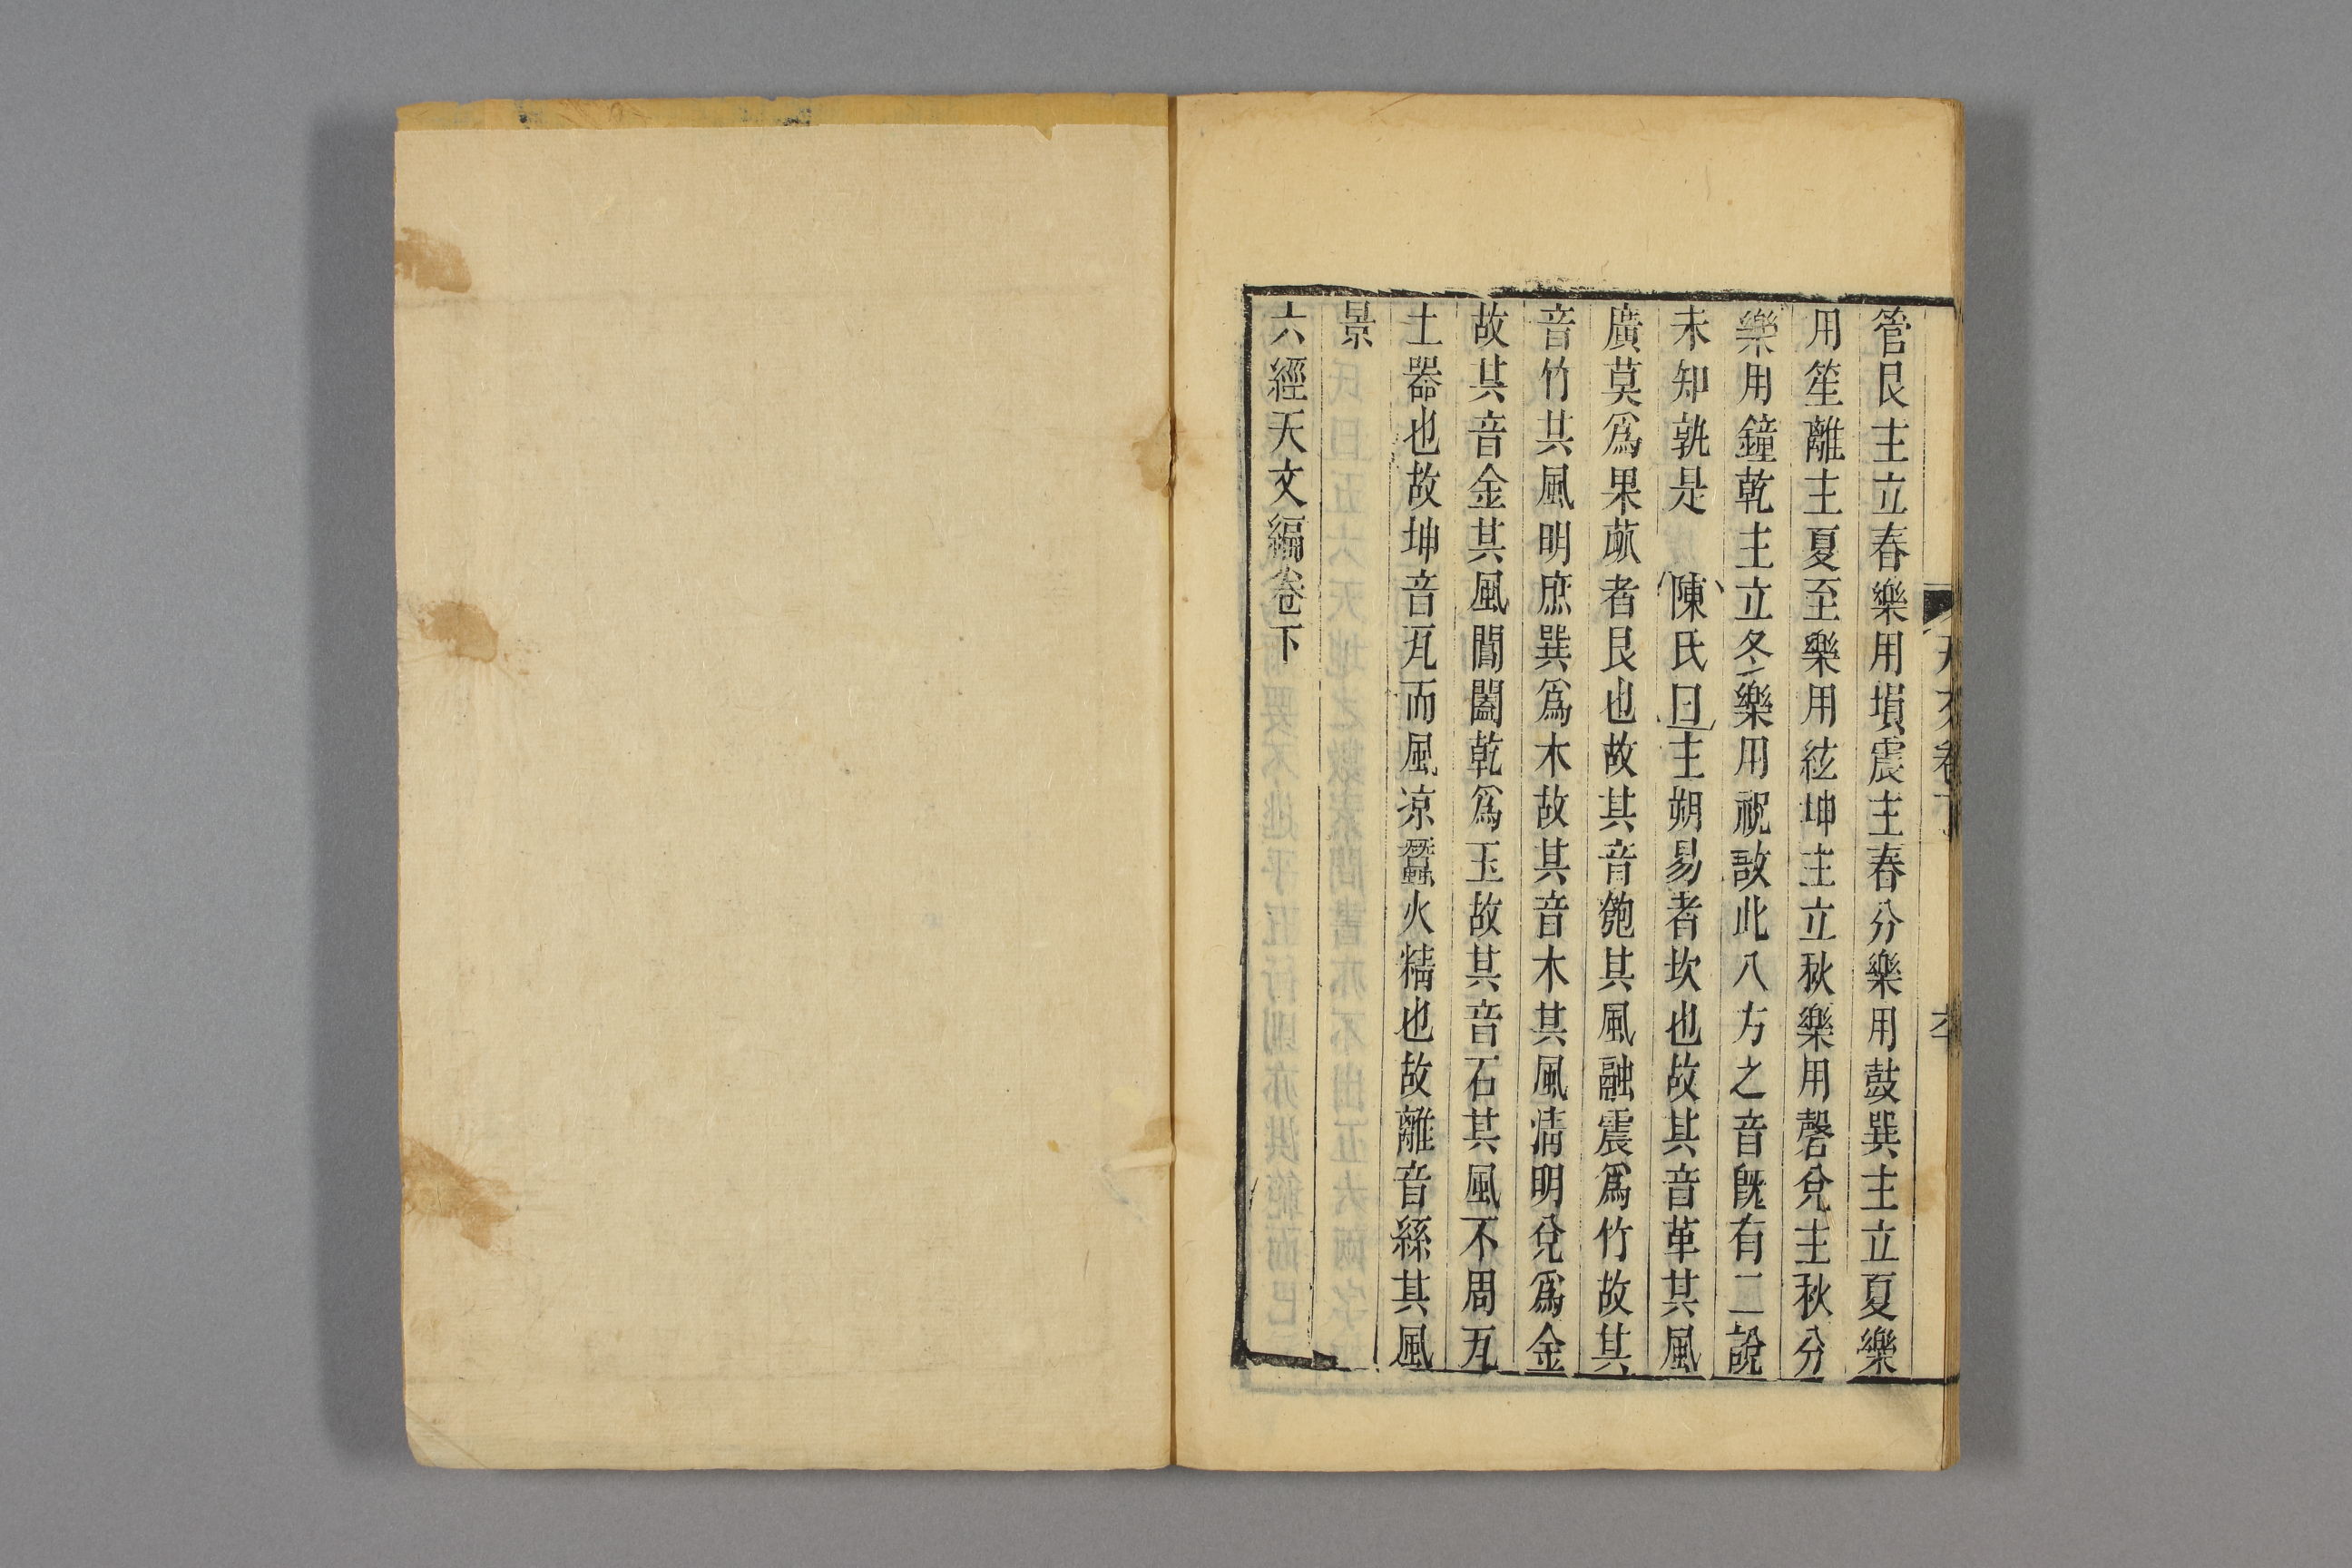 管艮主立春樂用塤震主春分樂用鼓巽主立夏樂
用笙離主夏至樂用絃坤主立秋樂用磬兌主秋分
樂用鐘乾主立冬樂用祝敔此八方之音既有二說
未知孰是　陳氏曰主朔易者坎也故其音革其風
廣莫為果蓏者艮也故其音匏其風融震為竹故其
音竹其風明庶巽為木故其音木其風清明兌為金
故其音金其風閶闔乾為玉故其音石其風不周瓦
土器也故坤音瓦而風凉蠶火精也故離音絲其風
景
六經天文編卷下
天文卷下